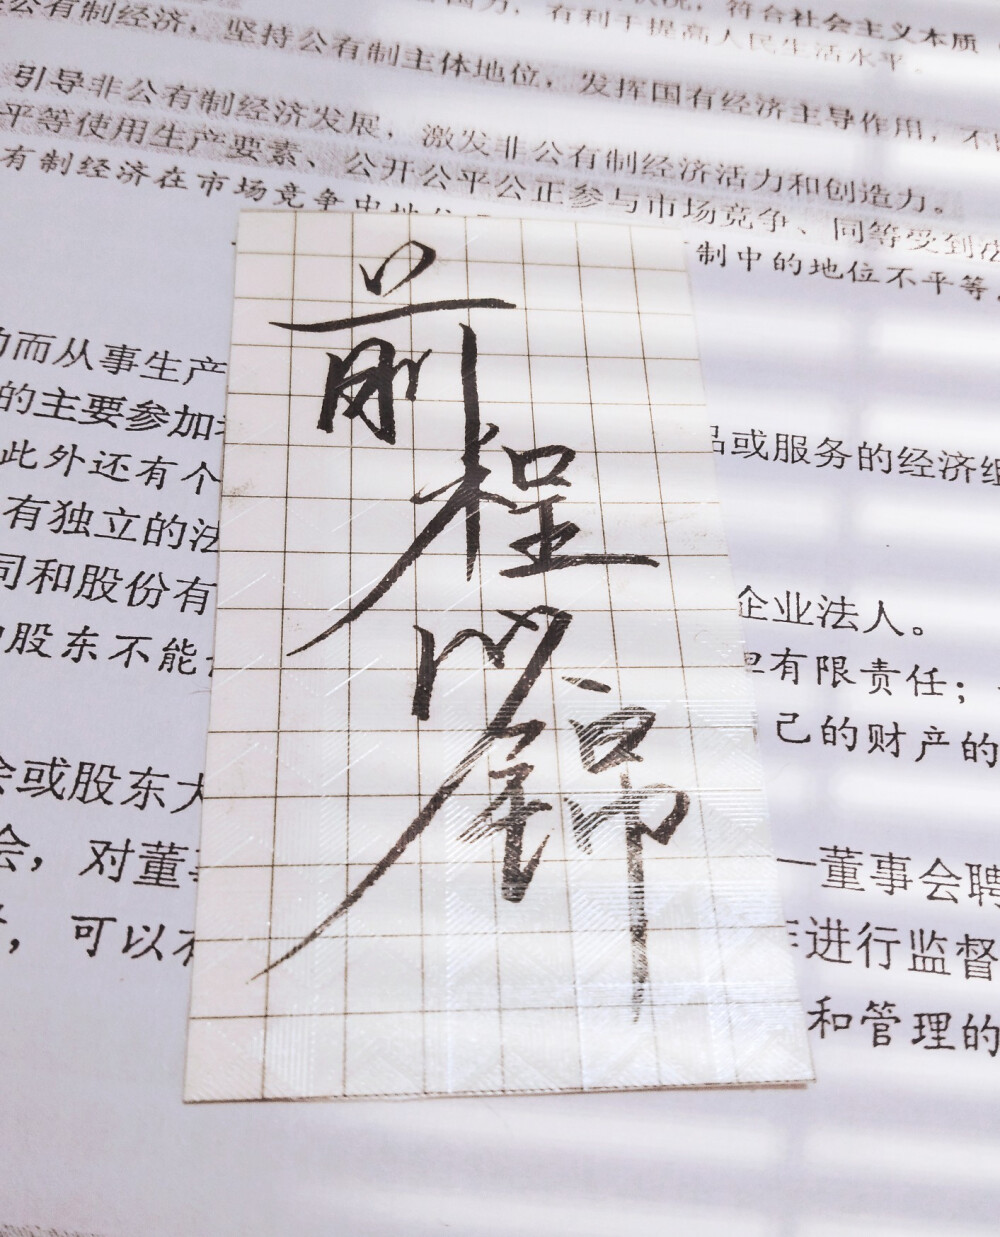 状况，符合社会主义本质
国力，有利于提高人民生活水平。
公有制经济，坚持公有制主体地位，发挥国有经济主导作用，不
引导非公有制经济发展，激发非公有制经济活力和创造力。
平等使用生产要素、公开公平公正参与市场竞争、同等受到法
有制经济在市场竞争中地位
制中的地位不平等，
前程似锦
而从事生产
品或服务的经济组
的主要参加
此外还有个
有独立的法
企业法人。
司和股份有
担有限责任；
股东不能
己的财产的
会或股东大
会，对董事
一董事会聘
，可以
进行监督
和管理的